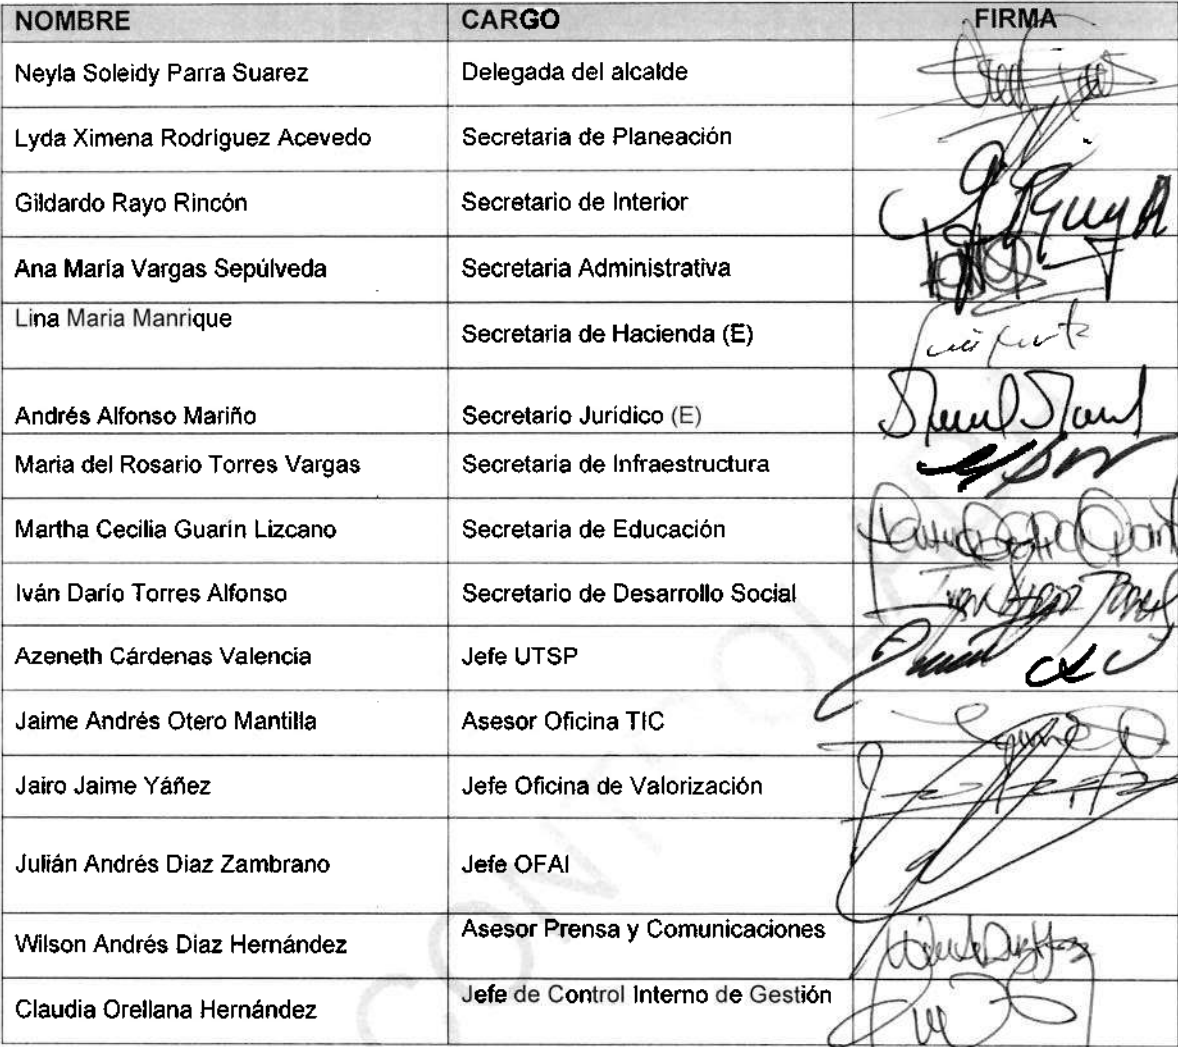 NOMBRE CARGO FIRMA
Neyla Soleidy Parra Suarez Delegada del alcalde
Lyda Ximena Rodriguez Acevedo Secretaria de Planeación
Gildardo Rayo Rincón Secretario de Interior
Ana María Vargas Sepúlveda Secretaria Administrativa
Lina Maria Manrique Secretaria de Hacienda (E)
Andrés Alfonso Mariño Secretario Jurídico (E)
Maria del Rosario Torres Vargas Secretaria de Infraestructura
Martha Cecilia Guarín Lizcano Secretaria de Educación
Iván Darío Torres Alfonso Secretario de Desarrollo Social
Azeneth Cárdenas Valencia Jefe UTSP
Jaime Andrés Otero Mantilla Asesor Oficina TIC
Jairo Jaime Yáñez Jefe Oficina de Valorización
Julián Andrés Diaz Zambrano Jefe OFAI
Wilson Andrés Diaz Hernández Asesor Prensa y Comunicaciones
Claudia Orellana Hernández Jefe de Control Interno de Gestión